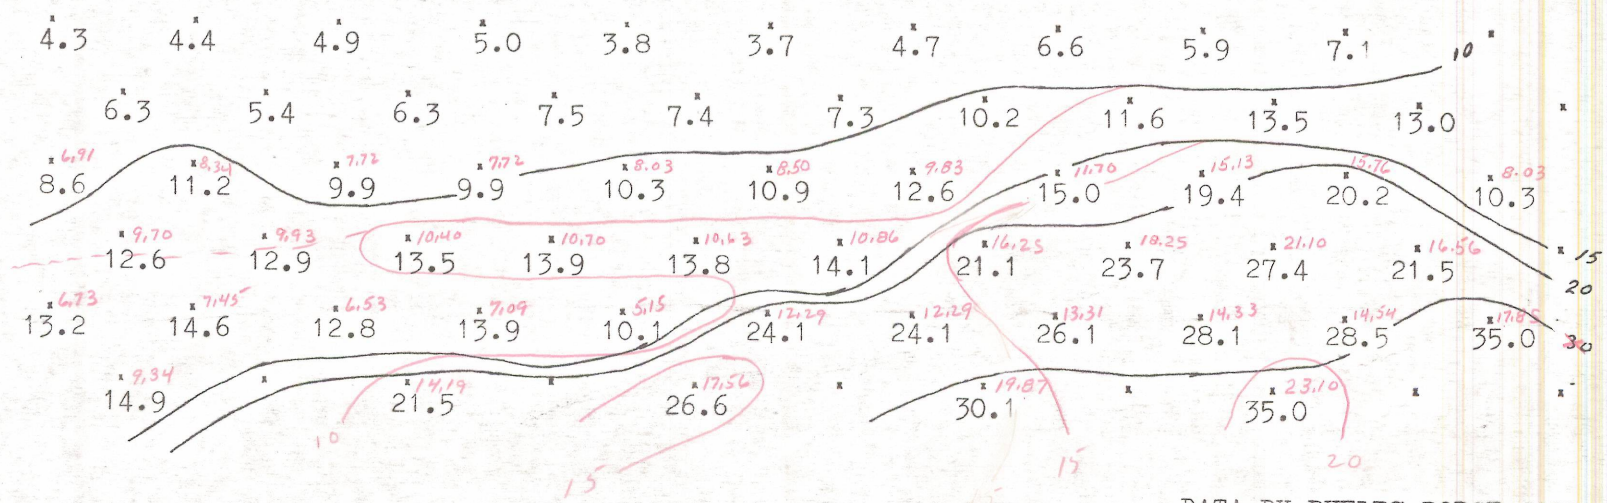 4.3 4.4 4.9 5.0 3.8 3.7 4.7 6.6 5.9 7.1 10
6.3 5.4 6.3 7.5 7.4 7.3 10.2 11.6 13.5 13.0
6.91 8.34 7.72 7.72 8.03 8.50 9.83 11.70 15.13 15.76 8.03
8.6 11.2 9.9 9.9 10.3 10.9 12.6 15.0 19.4 20.2 10.3
9.70 9.93 10.40 10.70 10.63 10.86 16.25 18.25 21.10 16.56 15
12.6 12.9 13.5 13.9 13.8 14.1 21.1 23.7 27.4 21.5 20
6.73 7.45 6.53 7.09 5.15 12.29 12.29 13.31 14.33 14.54 17.85
13.2 14.6 12.8 13.9 10.1 24.1 24.1 26.1 28.1 28.5 35.0 30
9.34 14.19 17.56 19.87 23.10
14.9 21.5 26.6 30.1 35.0
10 15 15 20